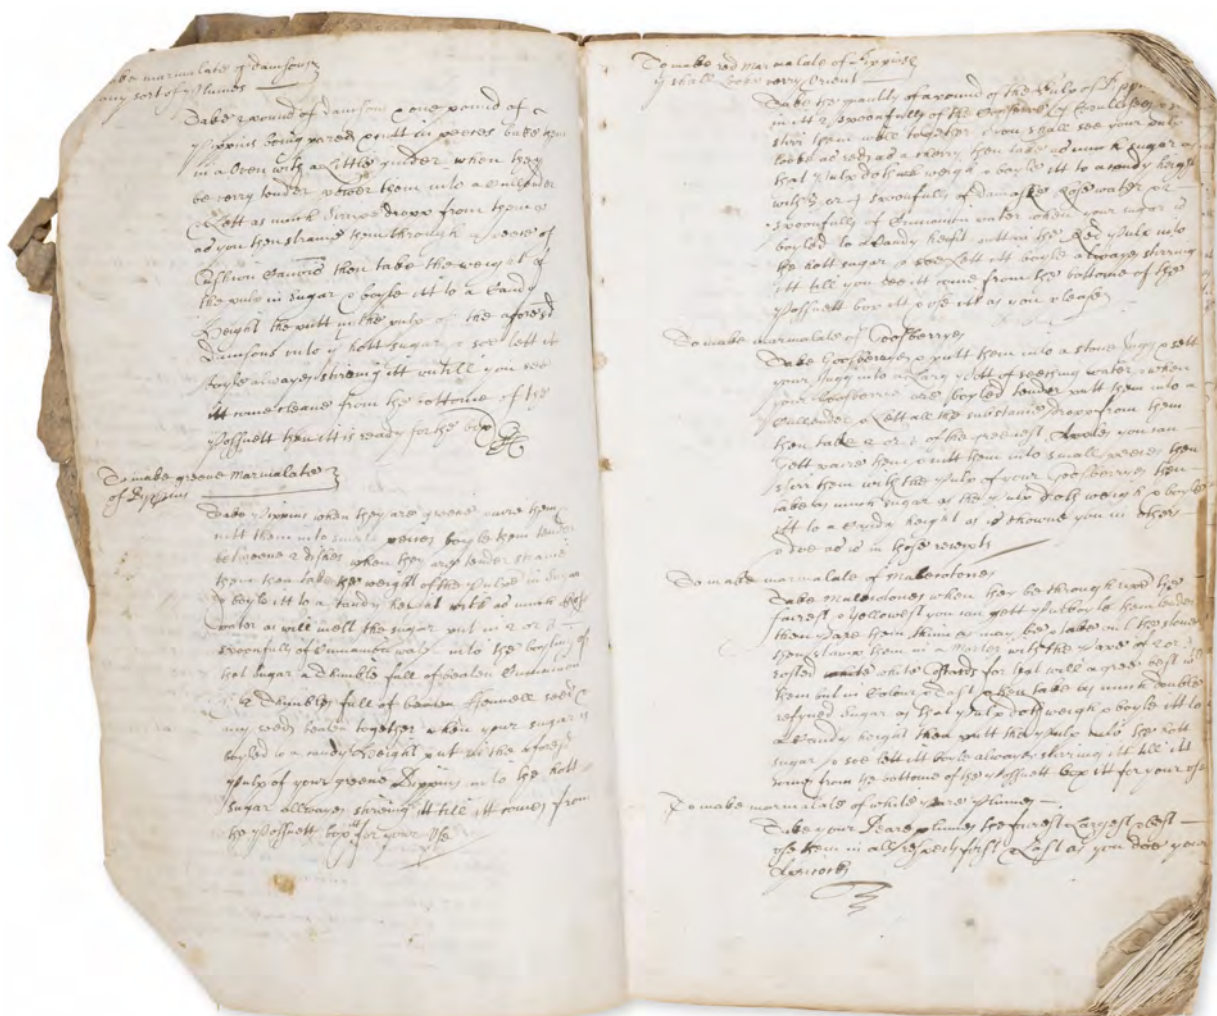 make marmalate of damsons
any sort of Plumes
Take 2 pound of damsons & one pound of
Pippins being pared & cutt in peeces bake them
in a Oven with a Little when they
be verry tender power them into a Cullender
& Lett as much Sirrope dropp from them
as you then straine them through a peece of
Cushion Canvis then take the weight of
the pulp in sugar & boyle itt to a Candy
Height the putt in the pulp of the aforesd
Damsons into ye hott sugar & soe lett it
boyle alwayes stiring itt untill you see
itt come cleane from the bottome of the
Possnett then itt is ready for the box
To make greene Marmalate
of Pippins
Take Pippins when they are greene paire them
cutt them into small peeces boyle them tender
betweene 2 dishes when they are tender straine
them then take the weight of the Pulpe in Sugar
& boyle itt to a Candy height with as much Rose
water as will melt the sugar put in 2 or 3
spoonfulls of Cinnamon water into the boyling of
that sugar a thimble full of beaten Cinnamon
& 2 thimbles full of beaten Fennell seed &
any seeds beaten together when your sugar is
boyled to a candy Height put in the aforesd
Pulp of your greene Pippins into the hott
sugar allwayes stireing itt till itt comes from
the Possnett box itt for your Use
To make red Marmalate of Pippins
yt shall Looke verry Orient
Take the quantity of a pound of the Pulp of Pipp
in itt 2 spoonfulls of the of
stirr them well together & you shall see your pulp
looke as red as a cherry then take as much sugar as
that Pulp doth weigh & boyle itt to a candy height
with 3 or 4 spoonfulls of damask Rosewater & 2
spoonfulls of Cinnamon water when your sugar is
boyled to a Candy height putt in the Red Pulp into
the hott sugar & soe Lett itt boyle alwayes stirring
itt till you see itt come from the bottome of the
Possnett box itt & use itt as you please
To make marmalate of Goosberryes
Take Goosberryes & putt them into a stone Jugg & sett
your Jugg into a Larg Pott of seething water & when
your Goosberries are boyled tender putt them into a
Cullender & Lett all the substance dropp from them
then take 2 or 3 of the greenest Apples you can
Gett paire them & cutt them into small peeces then
stirr them with the Pulp of your Goosberryes then
take as much sugar as the Pulp doth weigh & boyle
itt to a Candy height as is showne you in other
& doe as is in those receipts
To make marmalate of Malecotones
Take Malecotones when they be through ripe the
fairest & Yellowest you can gett Parboyle them tender
then pare them thinn as may be & take out the stones
then stamp them in a Morter with the Pare of 2 or 3
rosted white for that will agree best with
them but in Colour & Tast then take as much double
refyned Sugar as that Pulp doth weigh & boyle itt to
a Candy height then putt the Pulp into the hott
sugar & soe lett itt boyle alwayes stirring itt till itt
come from the bottome of the Possnett box itt for your use
To make marmalate of white Peare Plumes
Take your Peare plumes the fairest Largest
use them in all respects first & Last as you doe your
Apricocks